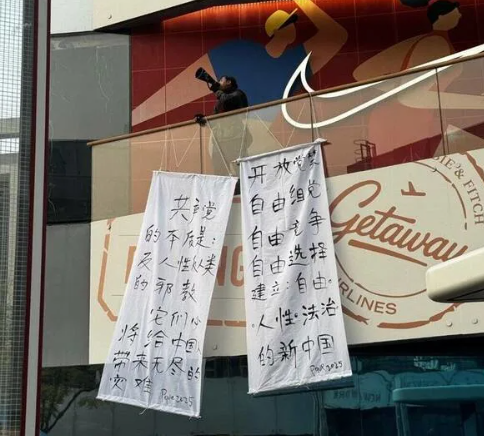 共产党
的本质是：
反人性 类
的邪教
它们
将给中国
带来无尽的
灾难
2025
开放党禁
自由组党
自由竞争
自由选择
建立：自由.
人性·法治
的新中国
2025
& FITCH
Getaway
RLINES